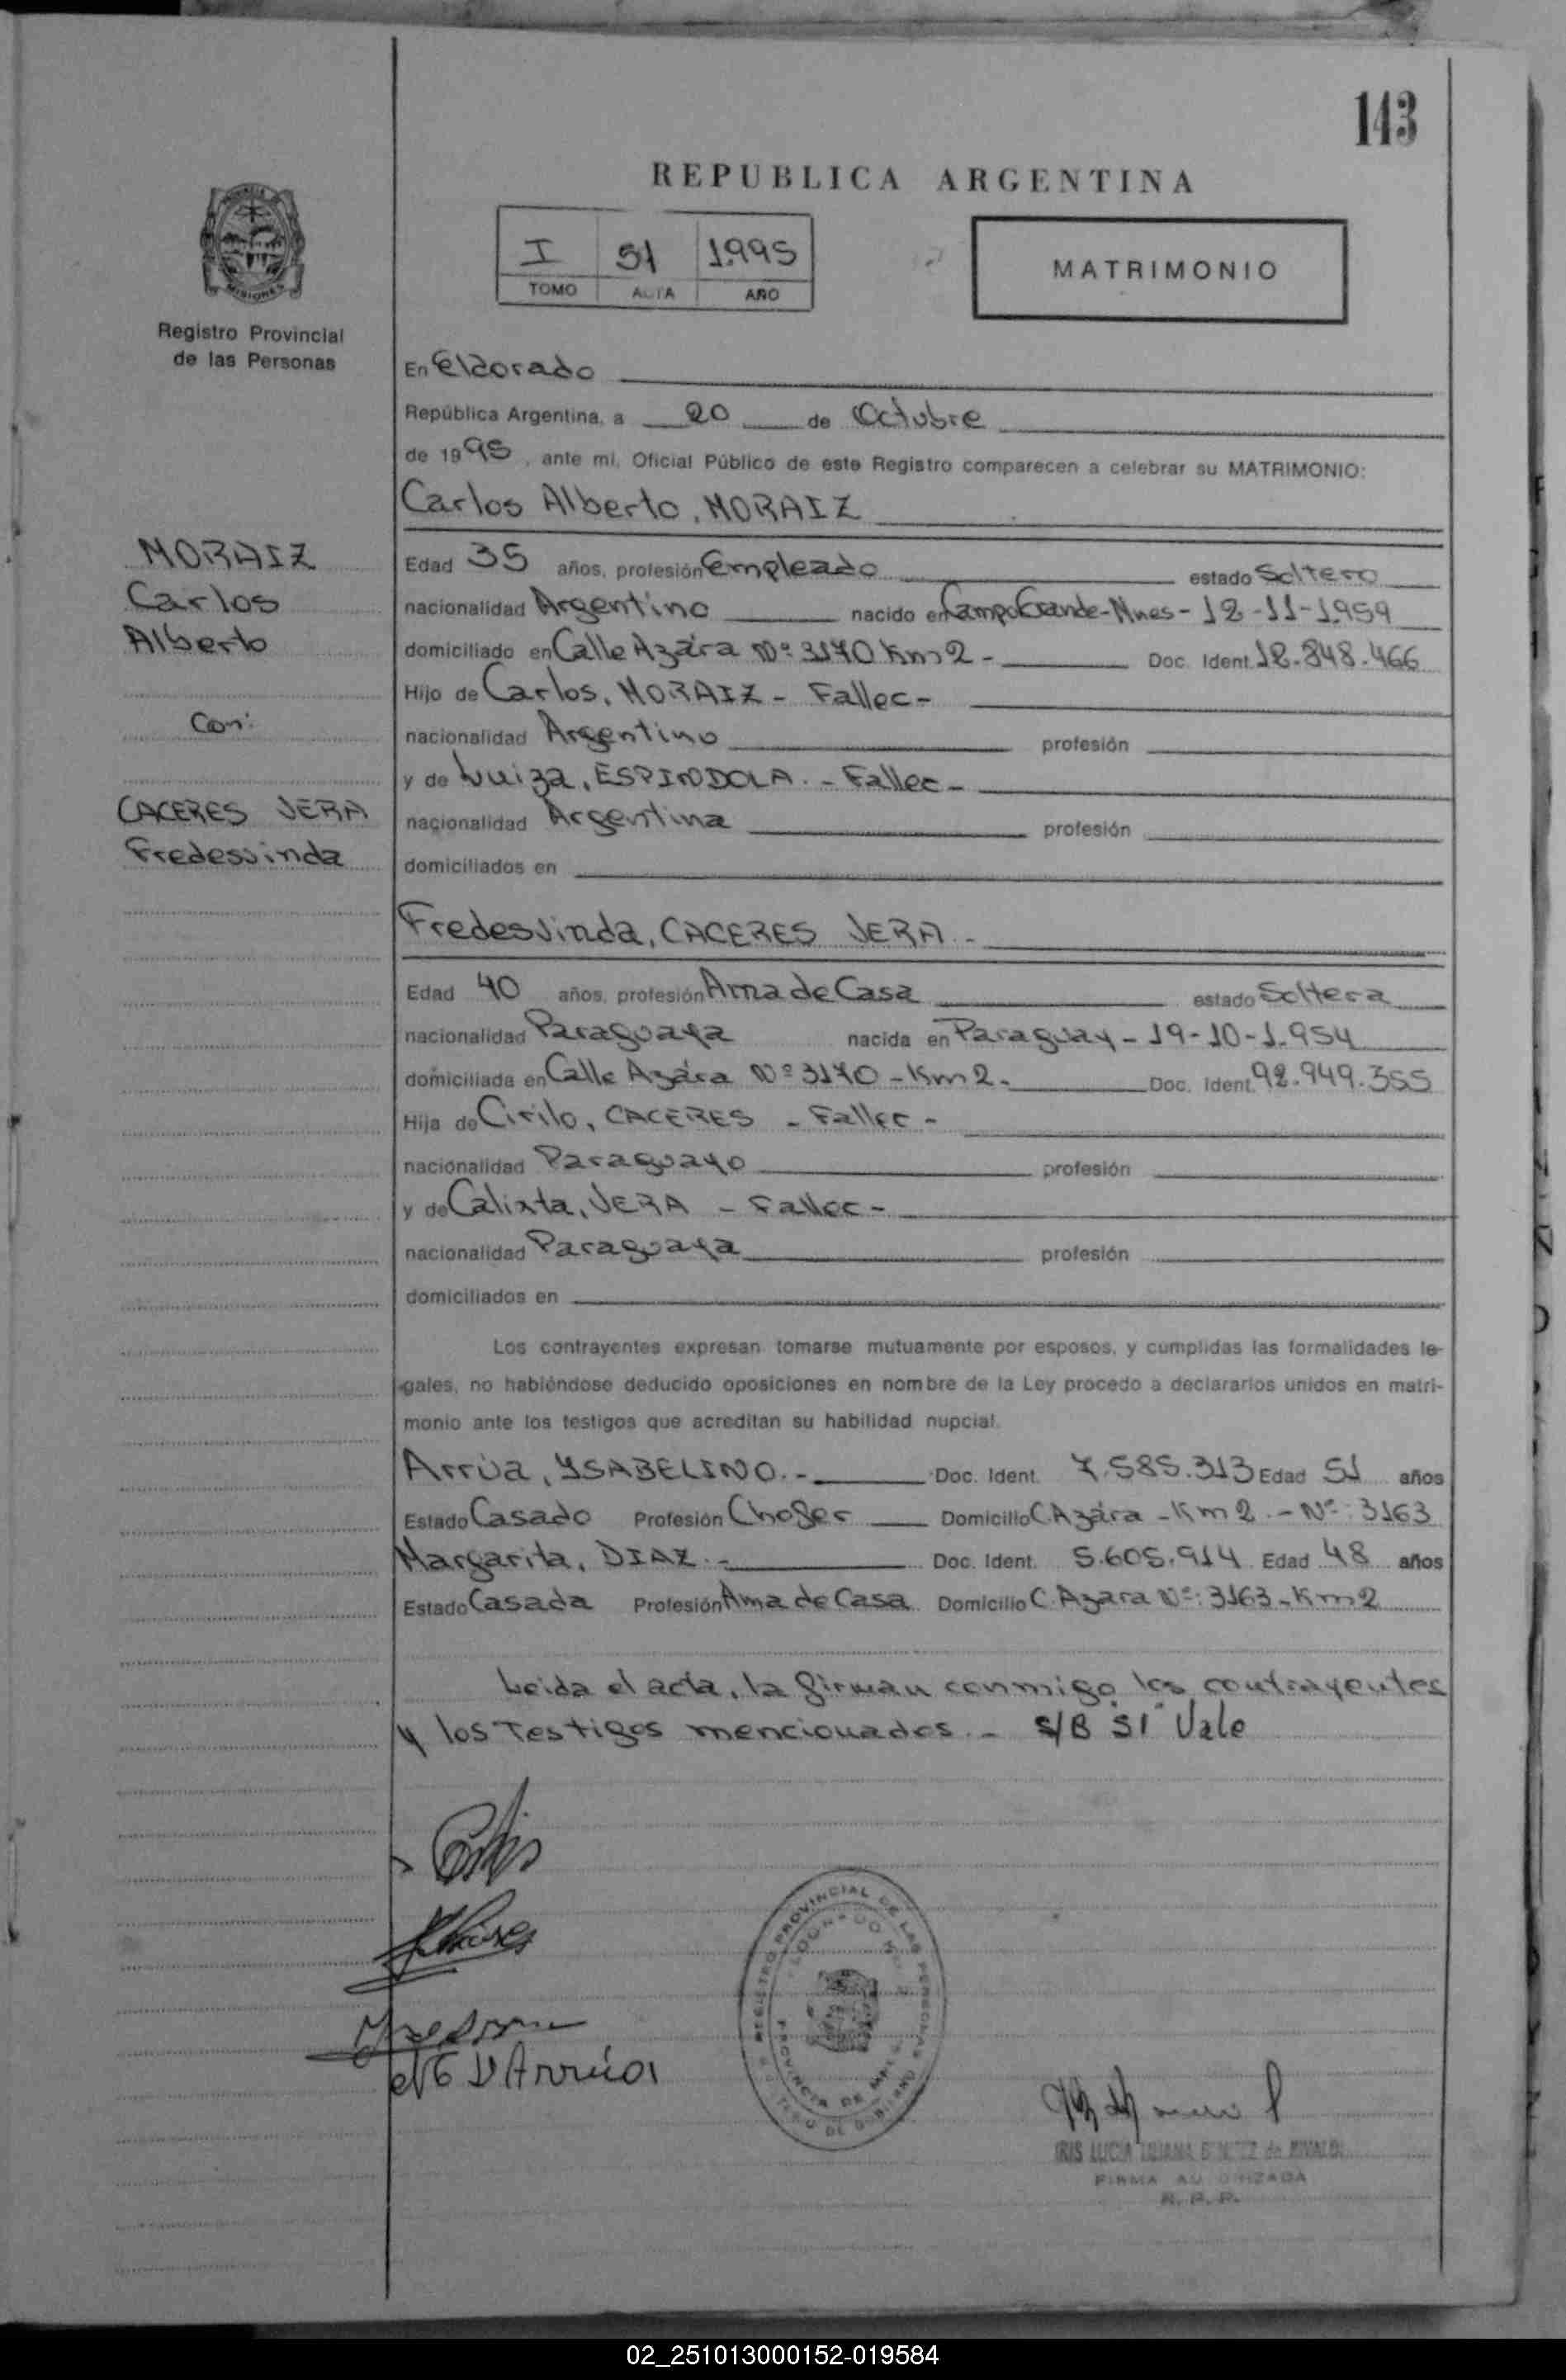 143
REPUBLICA ARGENTINA
I 51 1995
TOMO ACTA AÑO
MATRIMONIO
MISIONES
Registro Provincial
de las Personas
En Eldorado
República Argentina, a 20 de Octubre
de 1995, ante mi, Oficial Público de este Registro comparecen a celebrar su MATRIMONIO:
Carlos Alberto, MORAIZ
MORAIZ
Carlos
Alberto
Con:
CACERES VERA
Fredesvinda
Edad 35 años, profesión Empleado estado Soltero
nacionalidad Argentino nacido en Campo Grande-Mnes- 12-11-1.959
domiciliado en Calle Azára Nº 3140 Km 2- Doc. Ident. 12.848.466
Hijo de Carlos, MORAIZ - Fallec-
nacionalidad Argentino profesión
y de Luiza, ESPINDOLA. - Fallec-
nacionalidad Argentina profesión
domiciliados en
Fredesvinda, CACERES VERA -
Edad 40 años, profesión Ama de Casa estado Soltera
nacionalidad Paraguaya nacida en Paraguay - 19-10-1.954
domiciliada en Calle Azára Nº 3140 - Km 2- Doc. Ident. 92.949.355
Hija de Cirilo, CACERES - Fallec-
nacionalidad Paraguayo profesión
y de Calixta, VERA - Fallec-
nacionalidad Paraguaya profesión
domiciliados en
Los contrayentes expresan tomarse mutuamente por esposos, y cumplidas las formalidades le-
gales, no habiéndose deducido oposiciones en nombre de la Ley procedo a declararlos unidos en matri-
monio ante los testigos que acreditan su habilidad nupcial.
Arrúa, YSABELINO.- Doc. Ident. 7.585.313 Edad 51 años
Estado Casado Profesión Chofer Domicilio C. Azára - Km 2.- Nº: 3163
Margarita, DIAZ.- Doc. Ident. 5.605.914 Edad 48 años
Estado Casada Profesión Ama de Casa Domicilio C. Azara Nº: 3163-Km 2
Leida el acta, la firman conmigo los contrayentes
y los Testigos mencionados.- S/B 51 Vale
D Arrúa
REGISTRO PROVINCIAL DE LAS PERSONAS
PROVINCIA DE
IRIS LUCIA LILIANA BENITEZ de
FIRMA AUTORIZADA
R. P. P.
02_251013000152-019584